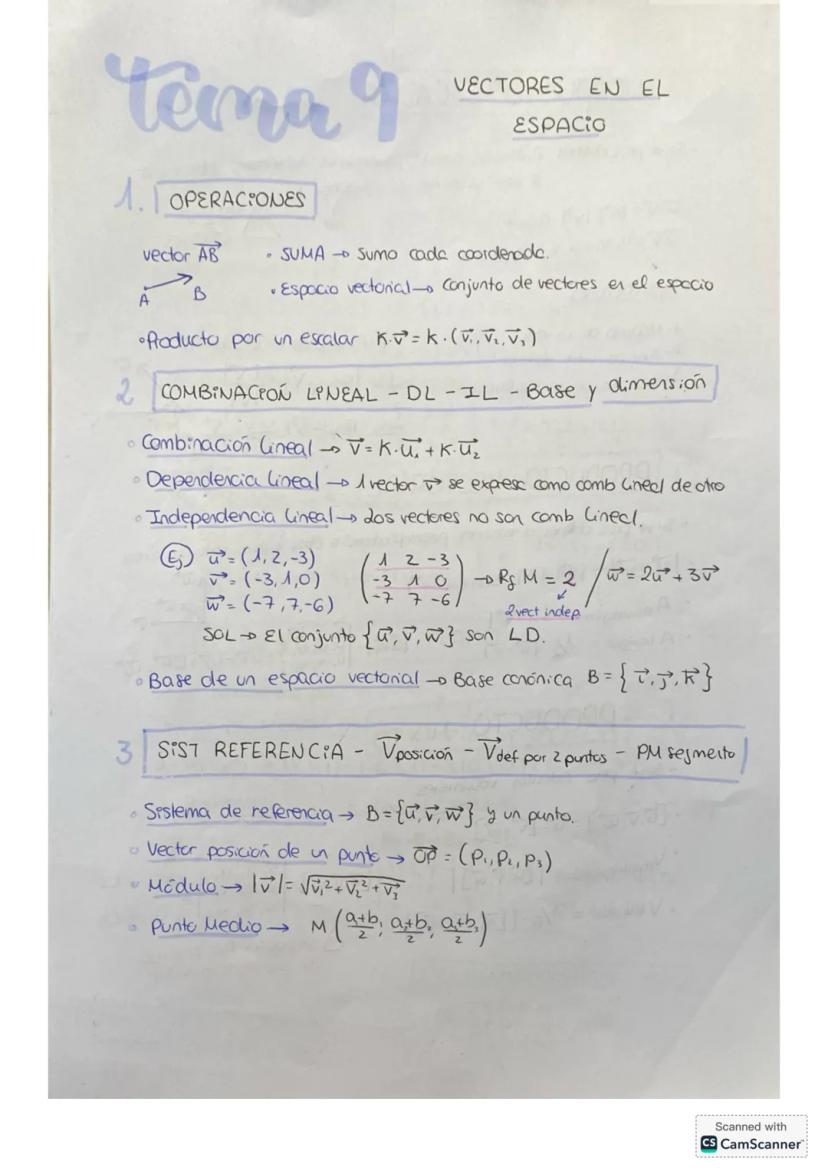 Tema 9
VECTORES EN EL
ESPACIO
1. OPERACIONES
vector AB⃗ • SUMA → Sumo cada coordenada.
A B • Espacio vectorial → Conjunto de vectores en el espacio
• Producto por un escalar K·v⃗ = k·(v⃗₁, v⃗₂, v⃗₃)
2 COMBINACIOŃ LINEAL - DL - IL - Base y dimensión
• Combinación lineal → v⃗ = K·u⃗₁ + K·u⃗₂
• Dependencia lineal → 1 vector v⃗ se expresa como comb lineal de otro
• Independencia lineal → dos vectores no son comb lineal.
Ej u⃗ = (1, 2, -3) ( 1 2 -3
v⃗ = (-3, 1, 0) -3 1 0 → Rg M = 2 / w⃗ = 2u⃗ + 3v⃗
w⃗ = (-7, 7, -6) -7 7 -6 ) 2 vect indep.
SOL → El conjunto {u⃗, v⃗, w⃗} son LD.
• Base de un espacio vectorial → Base canónica B = { i⃗, j⃗, k⃗ }
3 SIST REFERENCIA - V⃗posición - V⃗def por 2 puntos - PM segmento
• Sistema de referencia → B = {u⃗, v⃗, w⃗} y un punto.
• Vector posición de un punto → OP⃗ = (P₁, P₂, P₃)
• Módulo → |v⃗| = √(v⃗₁² + v⃗₂² + v⃗₃²)
• Punto Medio → M (a₁+b₁/2; a₂+b₂/2; a₃+b₃/2)
Scanned with
CS CamScanner